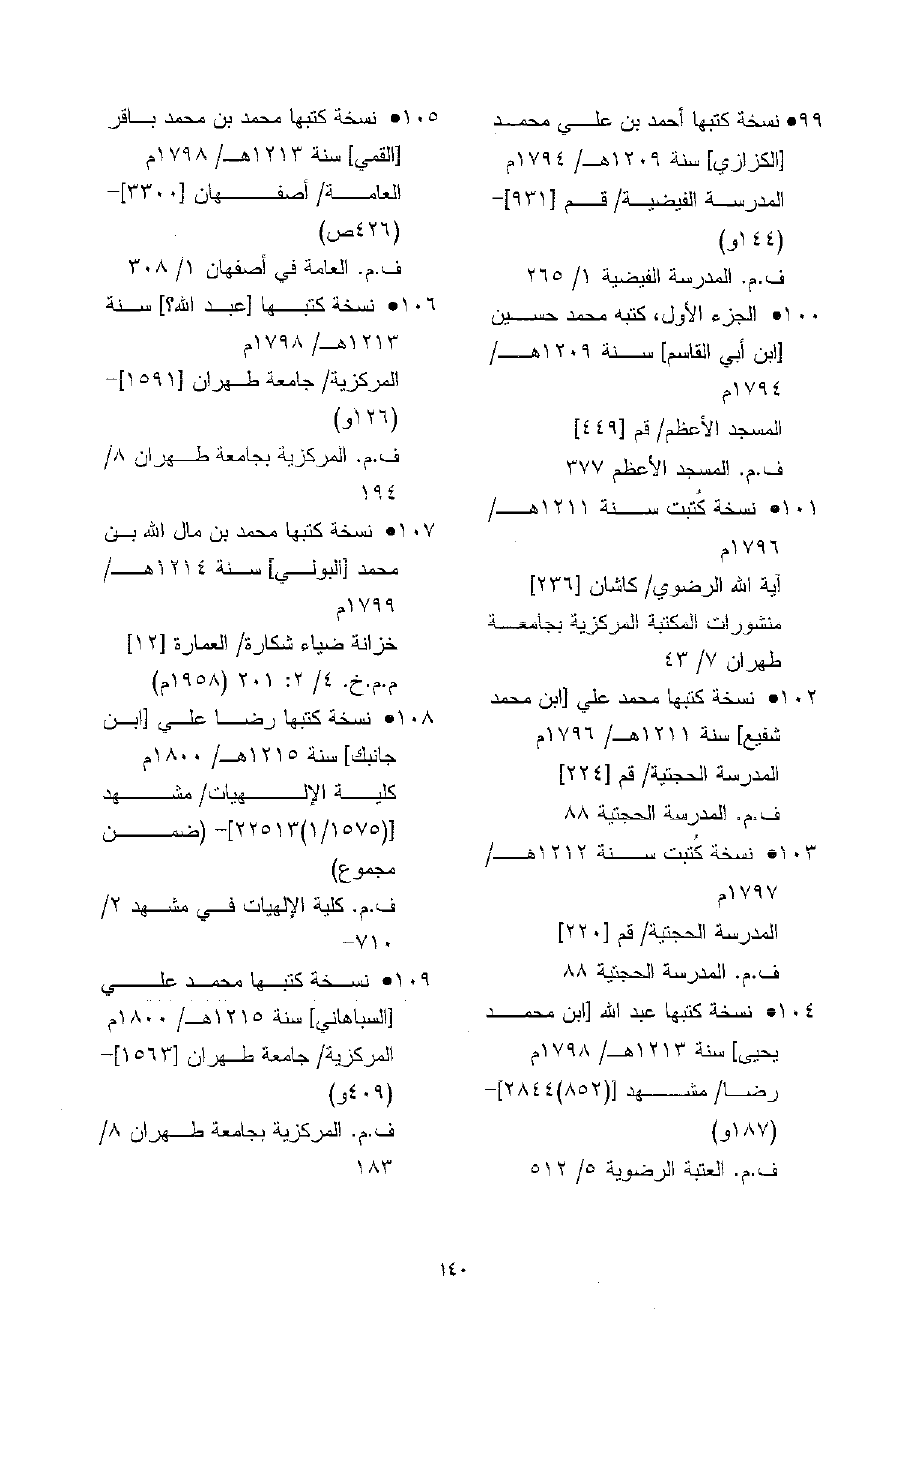 ٩٩● نسخة كتبها أحمد بن علي محمد
[الكزازي] سنة ١٢٠٩هـ/ ١٧٩٤م
المدرسة الفيضية/ قم [٩٣١]-
(١٤٤و)
ف.م. المدرسة الفيضية ١/ ٢٦٥
١٠٠● الجزء الأول، كتبه محمد حسين
[ابن أبي القاسم] سنة ١٢٠٩هـ/
١٧٩٤م
المسجد الأعظم/ قم [٤٤٩]
ف.م. المسجد الأعظم ٣٧٧
١٠١● نسخة كُتبت سنة ١٢١١هـ/
١٧٩٦م
آية الله الرضوي/ كاشان [٢٣٦]
منشورات المكتبة المركزية بجامعة
طهران ٧/ ٤٣
١٠٢● نسخة كتبها محمد علي [ابن محمد
شفيع] سنة ١٢١١هـ/ ١٧٩٦م
المدرسة الحجتية/ قم [٢٢٤]
ف.م. المدرسة الحجتية ٨٨
١٠٣● نسخة كُتبت سنة ١٢١٢هـ/
١٧٩٧م
المدرسة الحجتية/ قم [٢٢٠]
ف.م. المدرسة الحجتية ٨٨
١٠٤● نسخة كتبها عبد الله [ابن محمد
يحيى] سنة ١٢١٣هـ/ ١٧٩٨م
رضا/ مشهد [(٨٥٢)٢٨٤٤]-
(١٨٧و)
ف.م. العتبة الرضوية ٥/ ٥١٢
١٠٥● نسخة كتبها محمد بن محمد باقر
[القمي] سنة ١٢١٣هـ/ ١٧٩٨م
العامة/ أصفهان [٣٣٠٠]-
(٤٢٦ص)
ف.م. العامة في أصفهان ١/ ٣٠٨
١٠٦● نسخة كتبها [عبد الله؟] سنة
١٢١٣هـ/ ١٧٩٨م
المركزية/ جامعة طهران [١٥٩١]-
(١٢٦و)
ف.م. المركزية بجامعة طهران ٨/
١٩٤
١٠٧● نسخة كتبها محمد بن مال الله بن
محمد [البوني] سنة ١٢١٤هـ/
١٧٩٩م
خزانة ضياء شكارة/ العمارة [١٢]
م.م.خ. ٤/ ٢: ٢٠١ (١٩٥٨م)
١٠٨● نسخة كتبها رضا علي [ابن
جانبك] سنة ١٢١٥هـ/ ١٨٠٠م
كلية الإلهيات/ مشهد
[(١/١٥٧٥)٢٢٥١٣]- (ضمن
مجموع)
ف.م. كلية الإلهيات في مشهد ٢/
٧١٠-
١٠٩● نسخة كتبها محمد علي
[السباهاني] سنة ١٢١٥هـ/ ١٨٠٠م
المركزية/ جامعة طهران [١٥٦٣]-
(٤٠٩و)
ف.م. المركزية بجامعة طهران ٨/
١٨٣
١٤٠